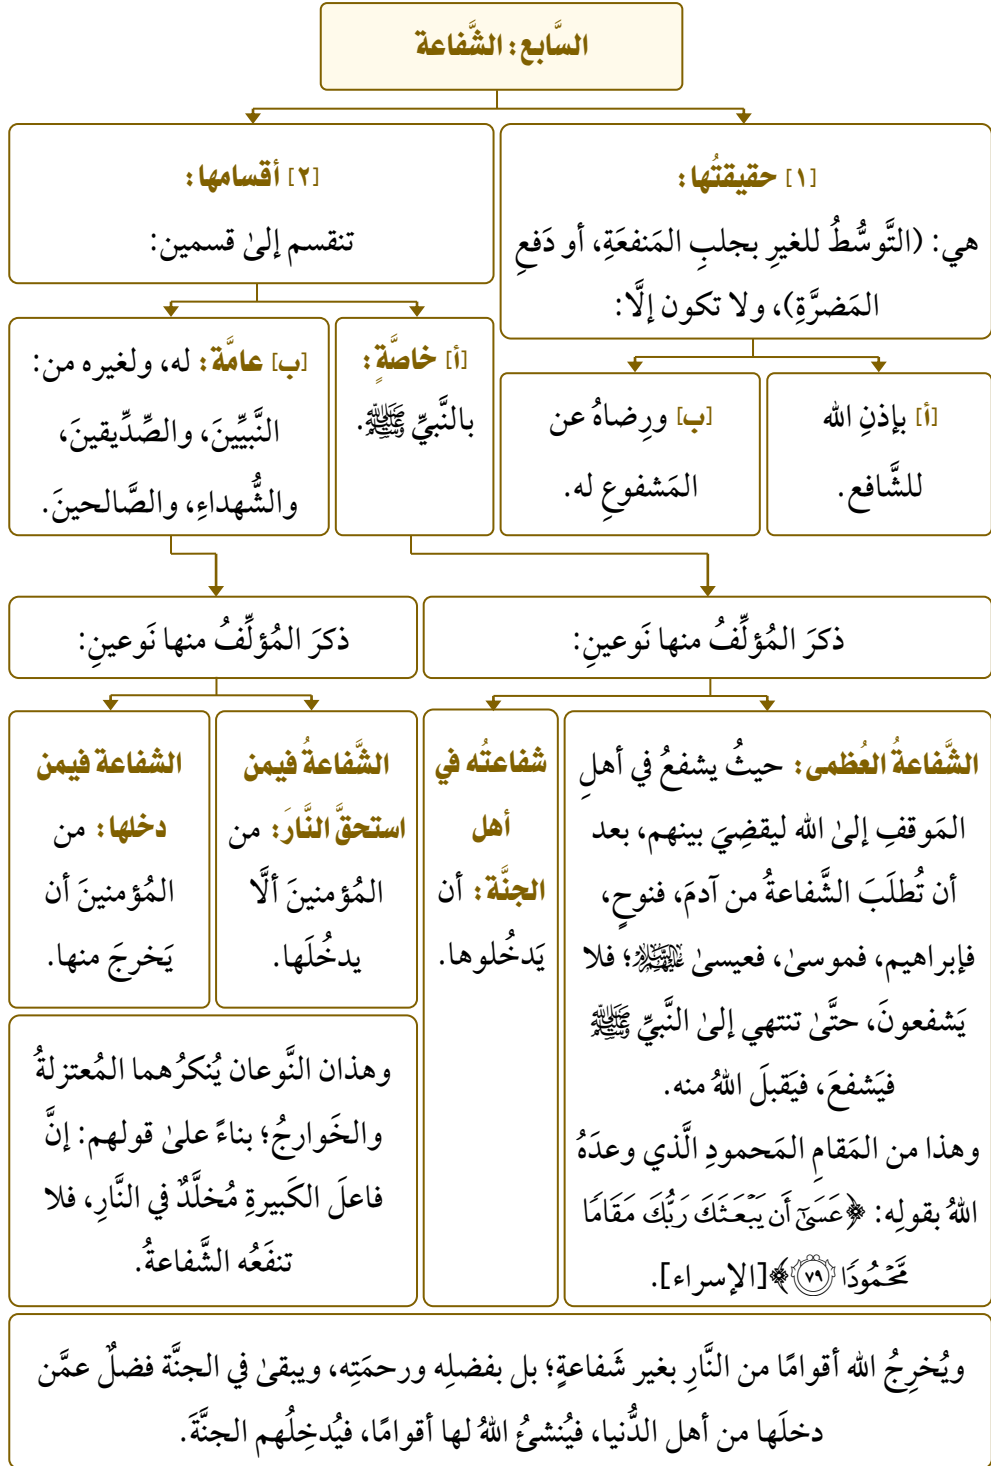 السَّابع: الشَّفاعة
[١] حقيقتُها:
هي: (التَّوسُّطُ للغيرِ بجلبِ المَنفعَةِ، أو دَفعِ
المَضرَّةِ)، ولا تكون إلَّا:
[أ] بإذنِ الله
للشَّافع.
[ب] ورِضاهُ عن
المَشفوعِ له.
[٢] أقسامها:
تنقسم إلىٰ قسمين:
[أ] خاصَّةٍ:
بالنَّبيِّ ﷺ.
[ب] عامَّة: له، ولغيره من:
النَّبيِّينَ، والصِّدِّيقينَ،
والشُّهداءِ، والصَّالحينَ.
ذكرَ المُؤلِّفُ منها نَوعينِ:
الشَّفاعةُ العُظمى: حيثُ يشفعُ في أهلِ
المَوقفِ إلىٰ الله ليقضِيَ بينهم، بعد
أن تُطلَبَ الشَّفاعةُ من آدمَ، فنوحٍ،
فإبراهيم، فموسىٰ، فعيسىٰ عَلَيْهِمُ السَّلَامُ؛ فلا
يَشفعونَ، حتَّىٰ تنتهي إلىٰ النَّبيِّ ﷺ
فيَشفعَ، فيَقبلَ اللهُ منه.
وهذا من المَقامِ المَحمودِ الَّذي وعدَهُ
اللهُ بقولِه: ﴿عَسَىٰٓ أَن يَبۡعَثَكَ رَبُّكَ مَقَامٗا
مَّحۡمُودٗا ٧٩﴾ [الإسراء].
شفاعتُه في
أهل
الجنَّة: أن
يَدخُلوها.
ذكرَ المُؤلِّفُ منها نَوعينِ:
الشَّفاعةُ فيمن
استحقَّ النَّارَ: من
المُؤمنينَ ألَّا
يدخُلَها.
الشفاعة فيمن
دخلها: من
المُؤمنينَ أن
يَخرجَ منها.
وهذان النَّوعان يُنكرُهما المُعتزلةُ
والخَوارجُ؛ بناءً علىٰ قولهم: إنَّ
فاعلَ الكَبيرةِ مُخلَّدٌ في النَّارِ، فلا
تنفَعُه الشَّفاعةُ.
ويُخرِجُ الله أقوامًا من النَّارِ بغير شَفاعةٍ؛ بل بفضلِه ورحمَتِه، ويبقىٰ في الجنَّة فضلٌ عمَّن
دخلَها من أهل الدُّنيا، فيُنشئُ اللهُ لها أقوامًا، فيُدخِلُهم الجنَّةَ.